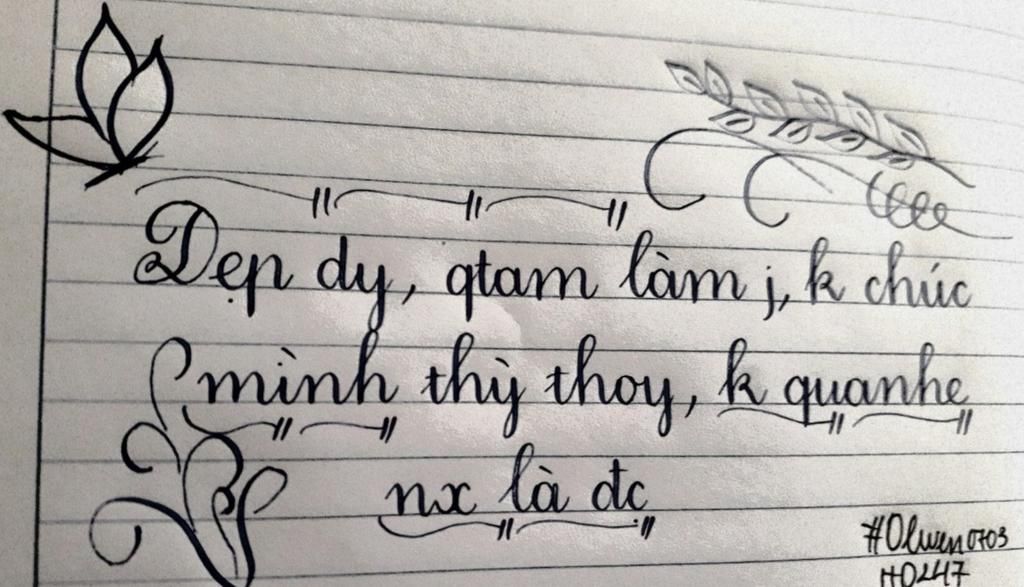 Đẹp dy, qtam làm j, k chúc
mình thỳ thoy, k quanhe
nx là đc
#Olwen0703
HD247